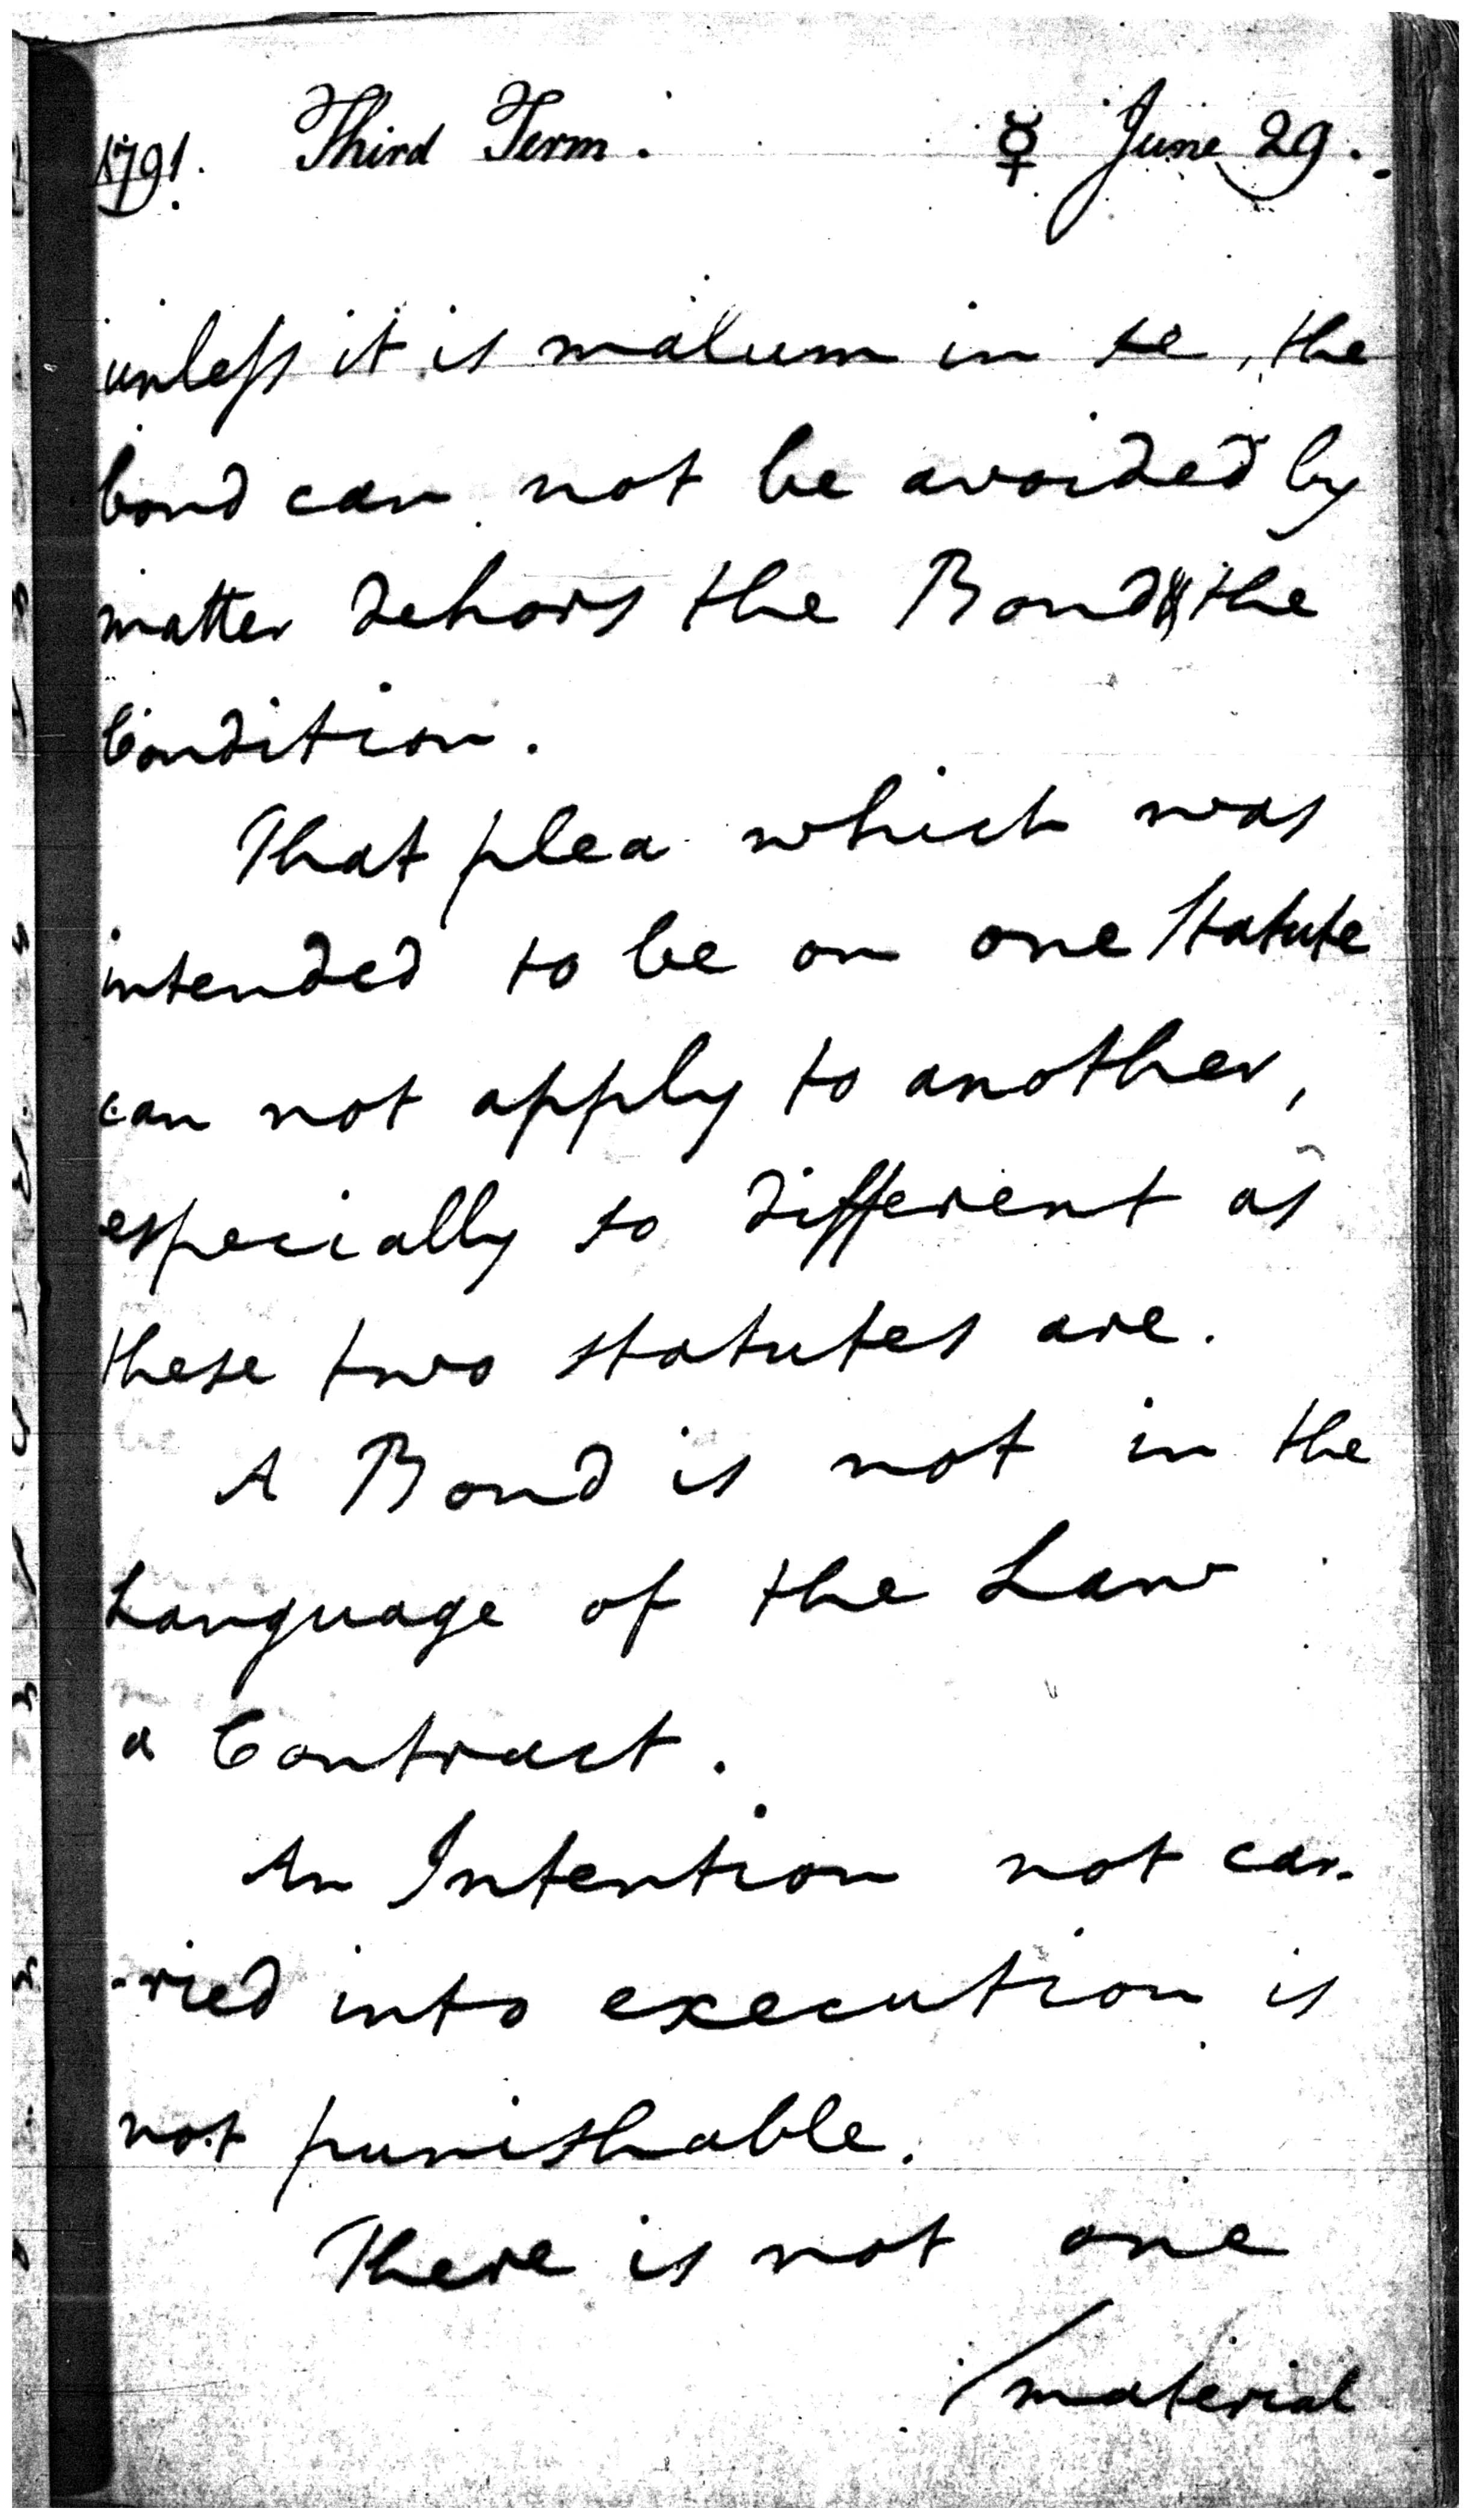 1791. Third Term. ☿ June 29.
unleſs it is malum in se, the
bond can not be avoided by
matter dehors the Bond & the
Condition.
That plea which was
intended to be on one Statute
can not apply to another,
especially so different as
these two statutes are.
A Bond is not in the
Language of the Law
a Contract.
An Intention not car-
-ried into execution is
not punishable.
There is not one
/material